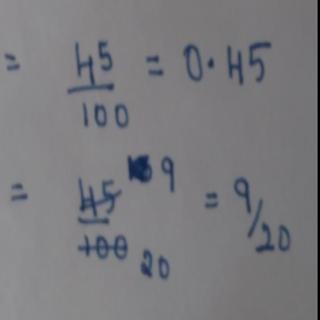 = 45/100 = 0.45
= 45/100 9/20 = 9/20